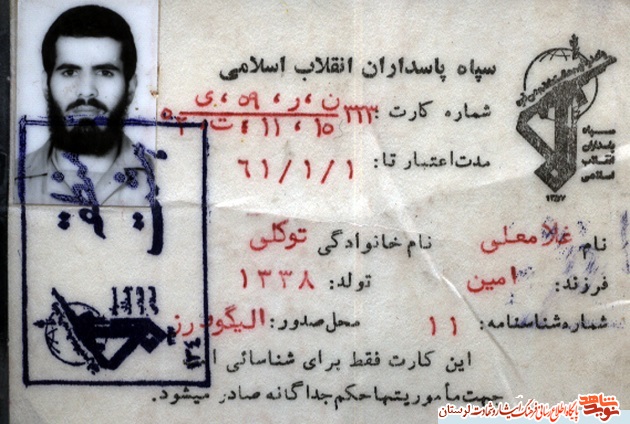 سپاه پاسداران انقلاب اسلامی
شماره کارت: ۳۲۳ ن، ر، ۵۹، ی
۱۵، ۱۱، ت
مدت اعتبار تا: ۶۱/۱/۱
سپاه
پاسداران
انقلاب
اسلامی
۱۳۵۷
نام غلامعلی نام خانوادگی توکلی
فرزند: امین تولد: ۱۳۳۸
شماره شناسنامه: ۱۱ محل صدور: الیگودرز
این کارت فقط برای شناسائی
جهت مأموریتها حکم جداگانه صادر میشود.
نوید شاهد
پایگاه اطلاع رسانی فرهنگ ایثار و شهادت لرستان